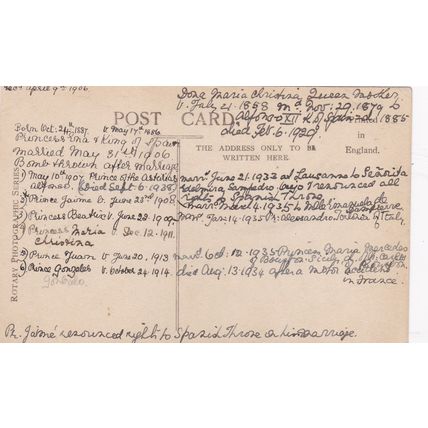 April 9th 1906
Dona Maria Christina Queen Mother
v. July 21. 1858 md Nov: 29. 1879 to
Alfonso XII K of Spain 1885
died Feb. 6. 1929
POST CARD
THE ADDRESS ONLY TO BE
WRITTEN HERE.
Printed
in
England.
ROTARY PHOTOGRAPHIC SERIES
Born Oct. 24th 1887. v May 17th 1886
Princess Ena & King of Spain
married May 31st 1906
Bomb thrown after marriage
1) May 10th 1907 Prince of the Asturias
Alfonso. (Died Sept 6 1938)
marr. June 21. 1933 at Lausanne to Señorita
Sampedro renounced all
rights to Spanish Throne
2) Prince Jaime v June 23rd 1908
marr. March 4. 1935 to Mlle Emanuela de
Dampierre
3) Princess Beatrice v June 22. 1909.
marr. Jan 14. 1935 Pr: Alessandro Torlonia of Italy.
4) Princess Maria v Dec. 12. 1911.
Christina
5) Prince Juan v June 20. 1913
marr. Oct: 12. 1935 Princess Maria Mercedes
of Bourbon Sicily
6) Prince Gonzales v October 24. 1914.
Gonzalo
died Aug. 13. 1934 after a motor accident
in France.
Pr. Jaime renounced rights to Spanish Throne on his marriage.